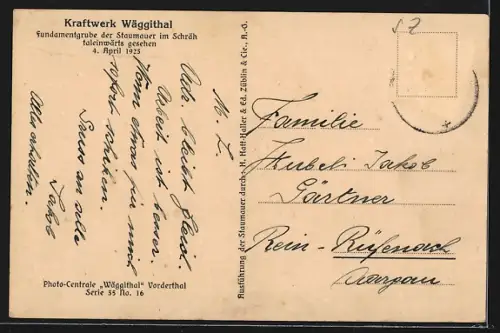 Kraftwerk Wäggithal
Fundamentgrube der Staumauer im Schräh
taleinwärts gesehen
4. April 1923
M. L.
Ausführung der Staumauer durch: H. Hatt-Haller & Ed. Züblin & Cie., A.-G.
bleibt gleich.
Arbeit ist besser.
etwas für mich
sofort schicken.
Gruss an alle
Jakob
Alles erhalten.
Photo-Centrale „Wäggithal" Vorderthal
Serie 55 No. 16
Familie
Hubeli Jakob
Gärtner
Rein-Rüfenach
Aargau